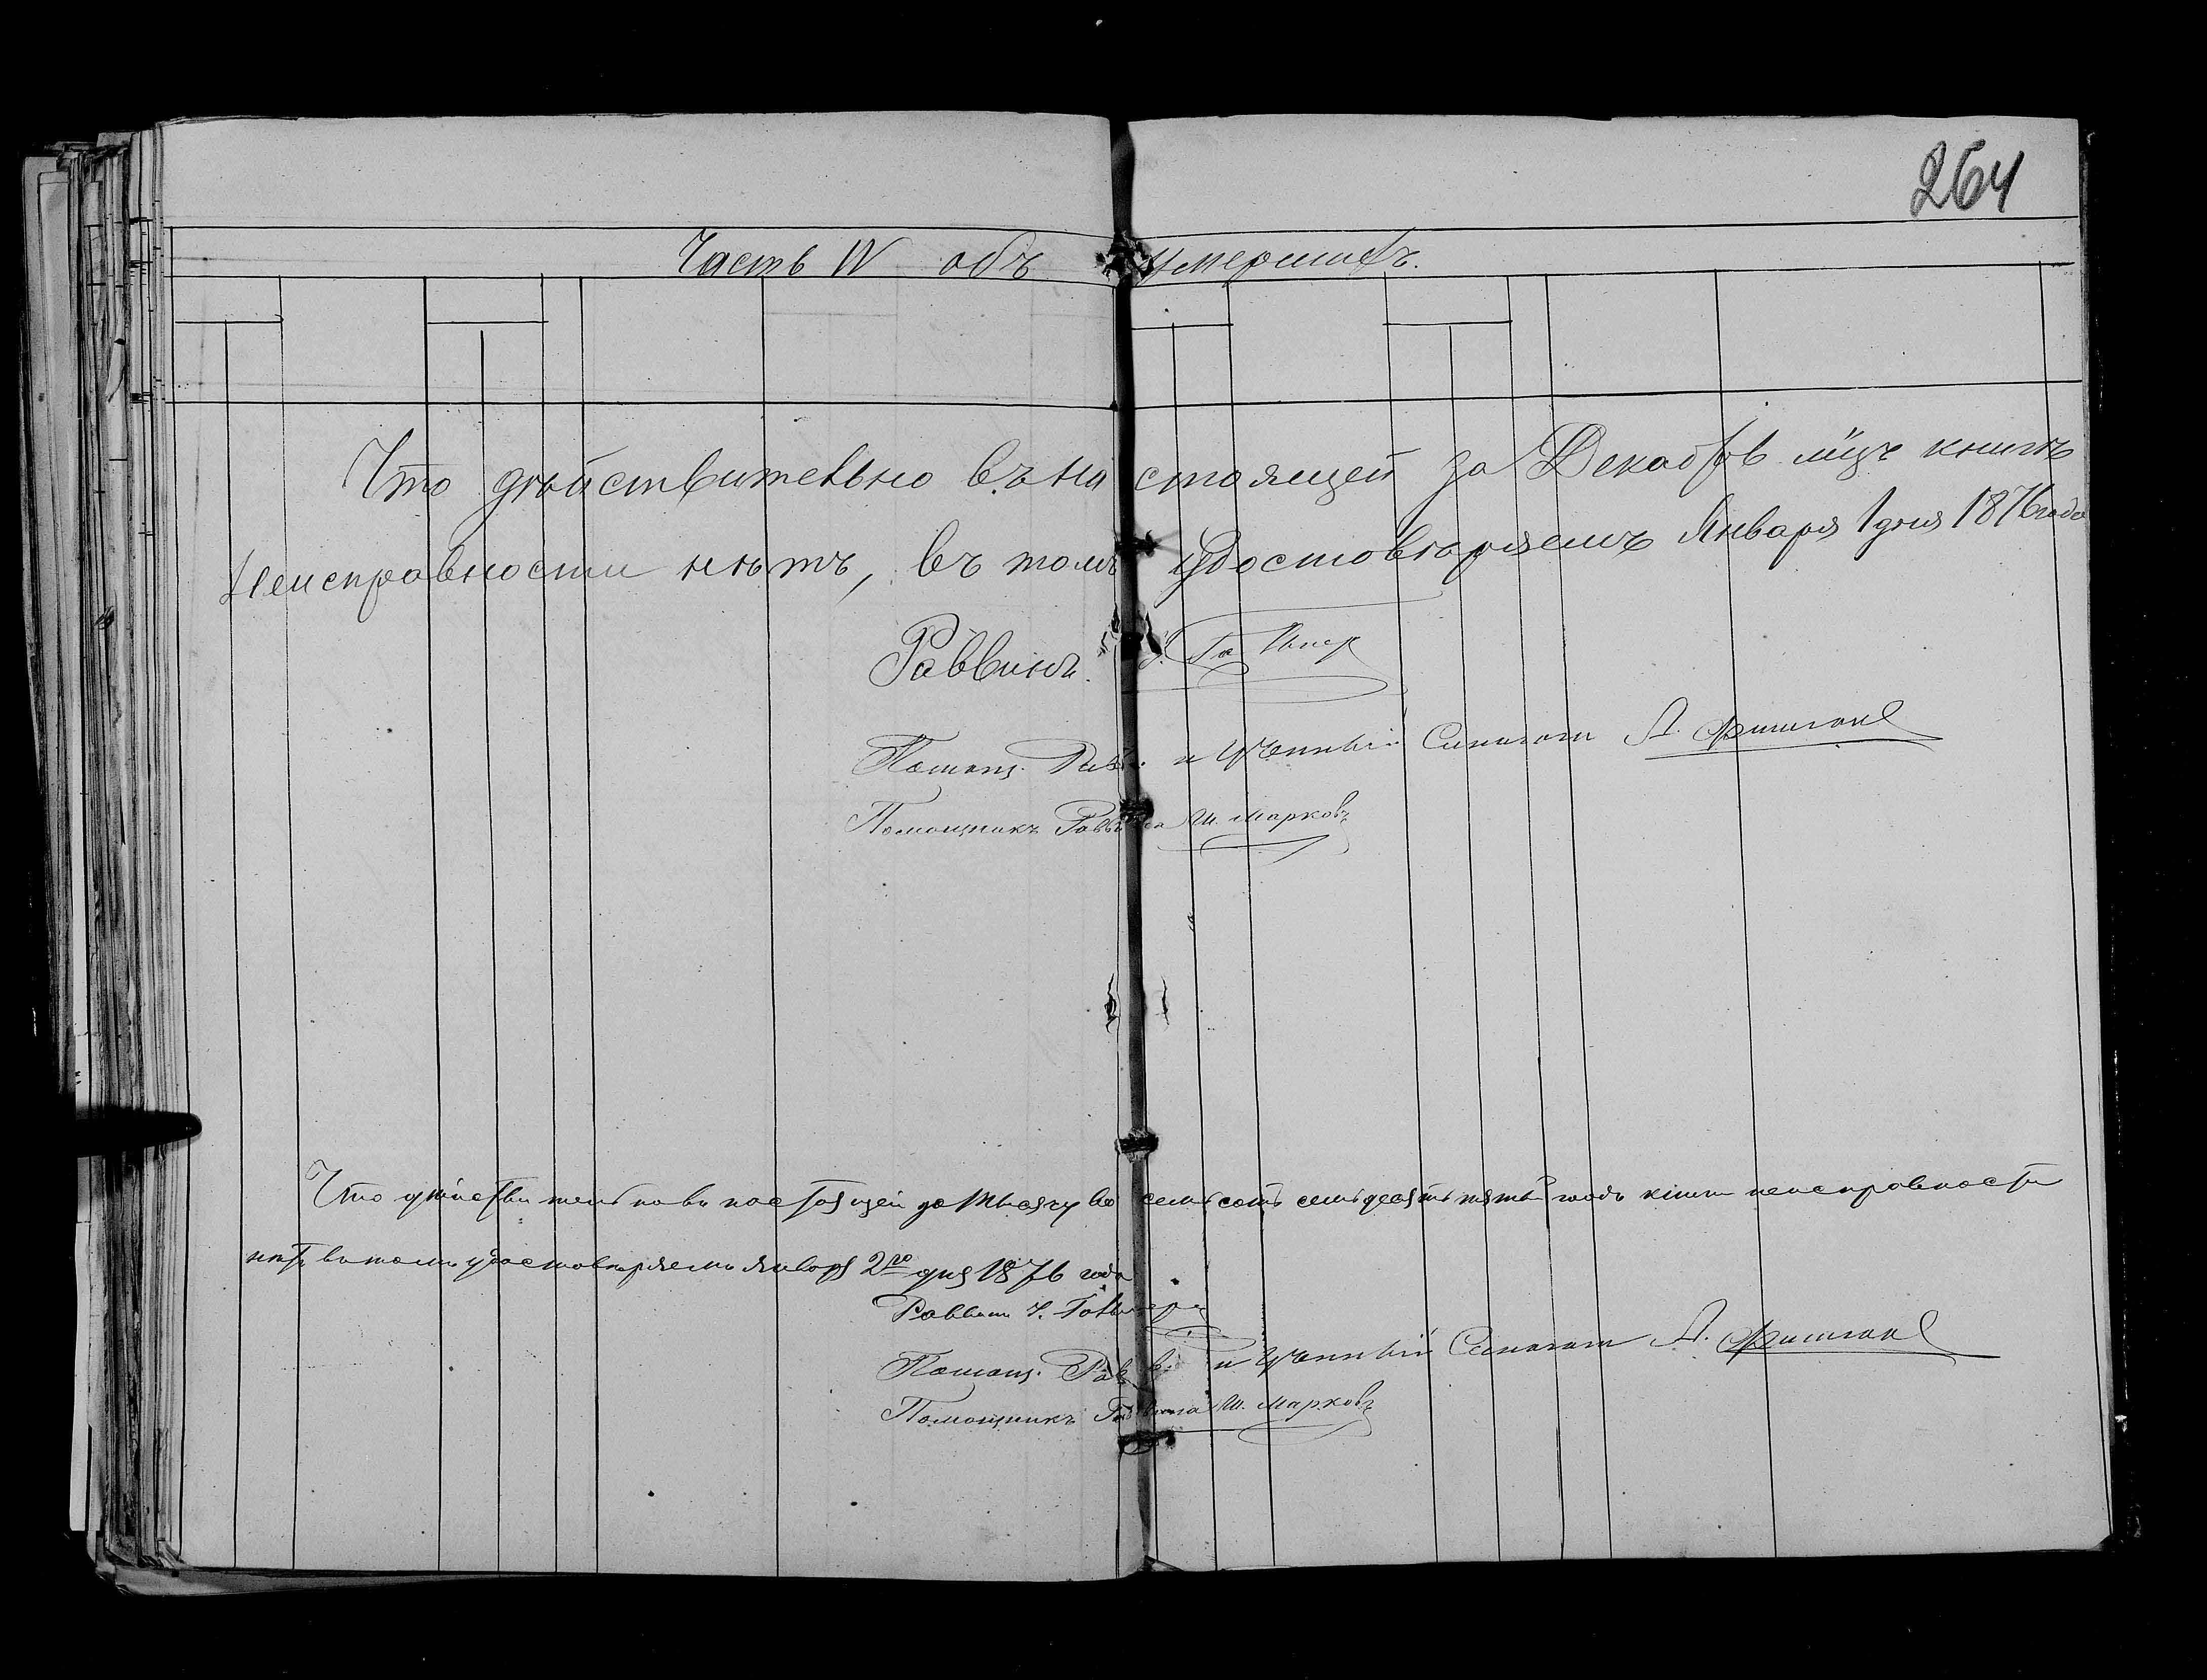 264
Часть IV объ умершихъ.
Что дѣйствительно въ настоящей за Декабрь м̃цъ книгѣ
неисправности нѣтъ, въ томъ удостовѣряемъ Января 1 дня 1876 года
Раввинъ
Помощ. Рав. и Ученый Синагоги А. Фишман
Помощникъ Раввина Ш. Марковъ
Что дѣйствительно въ настоящей за тысячу восемьсотъ семьдесятъ пятый годъ книги неисправности
нѣтъ въ томъ удостовѣряемъ Января 2го дня 1876 года
Раввин
Помощ. Рав. и Ученый Синагоги А. Фишман
Помощникъ Раввина Ш. Марковъ